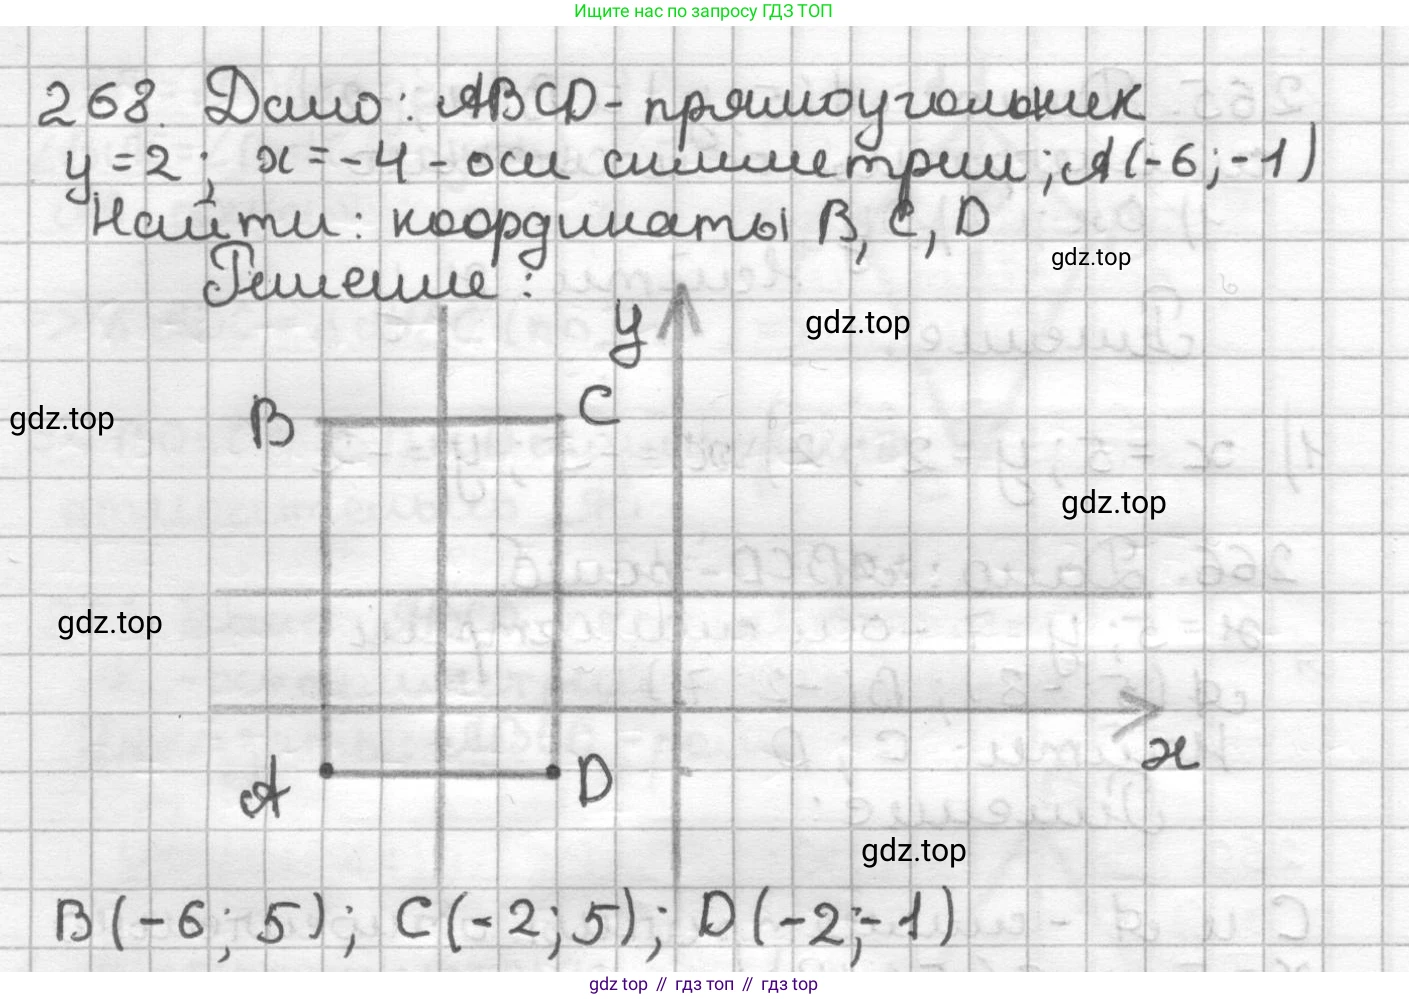 Ищите нас по запросу ГДЗ ТОП
268. Дано: ABCD - прямоугольник
y = 2; x = -4 - оси симметрии; A(-6; -1)
Найти: координаты B, C, D
gdz.top
Решение:
y
gdz.top
B
C
gdz.top
gdz.top
gdz.top
x
A
D
gdz.top
B(-6; 5); C(-2; 5); D(-2; -1)
gdz top // гдз топ // gdz top